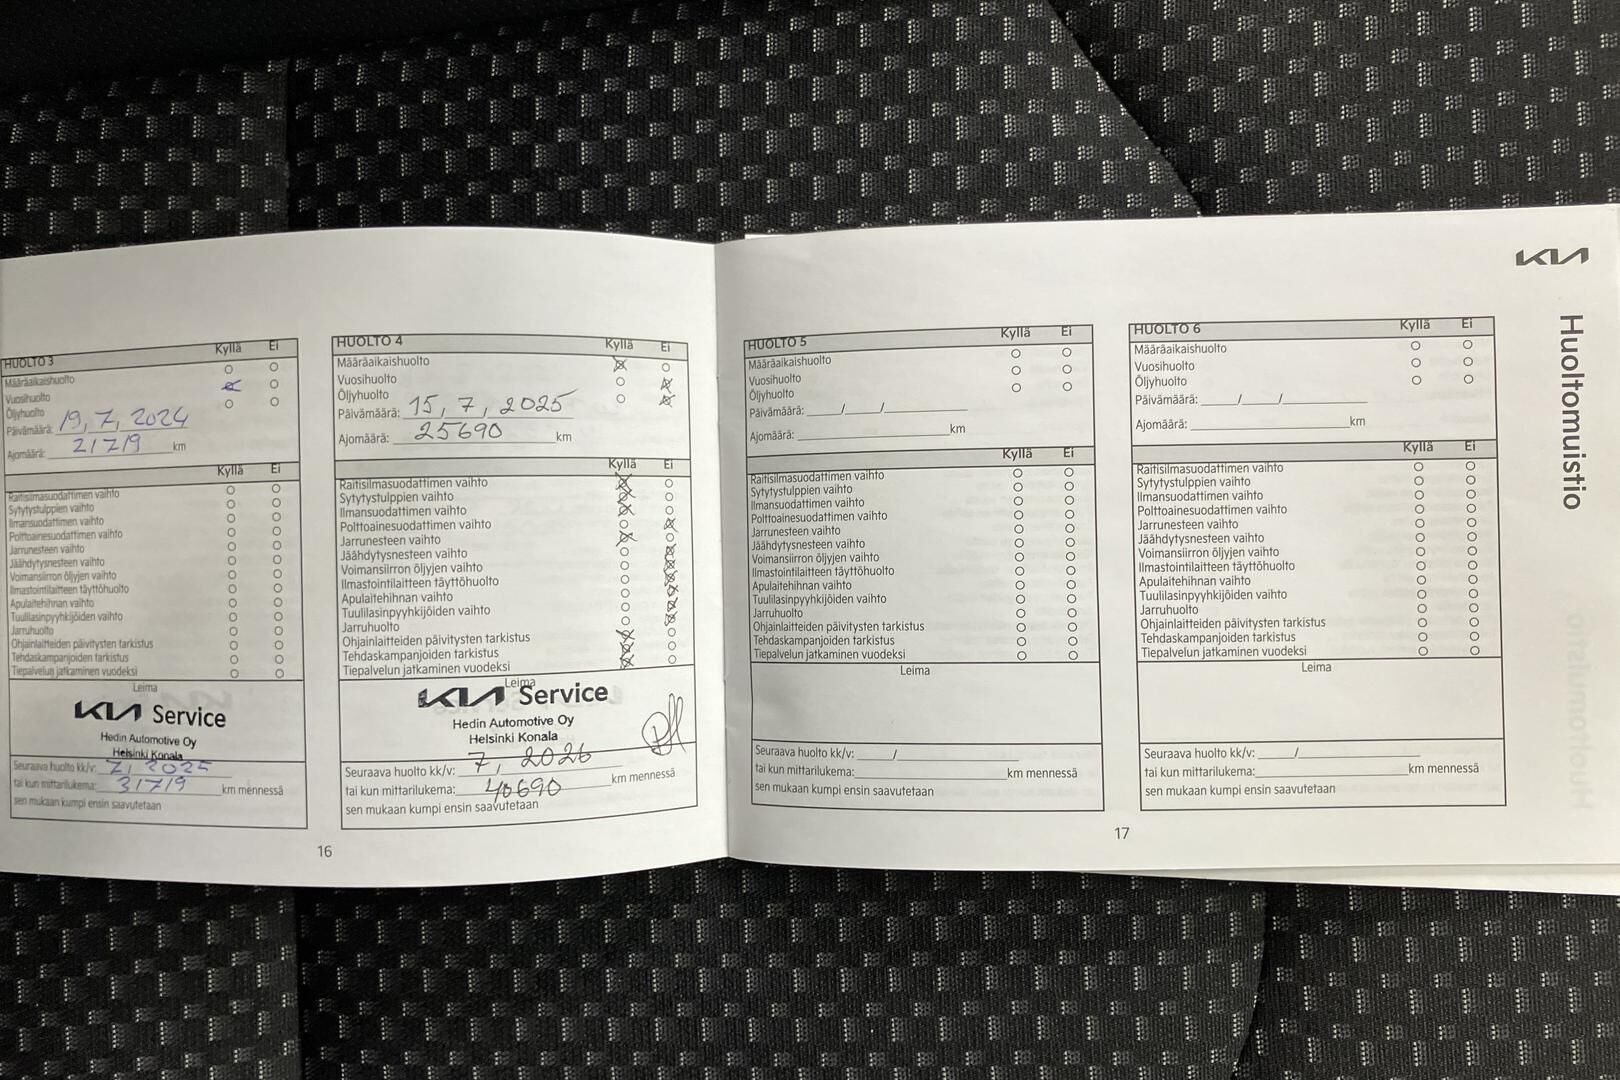 HUOLTO 3 Kyllä Ei
Määräaikaishuolto
Vuosihuolto
Öljyhuolto
Päivämäärä: 19, 7, 2024
Ajomäärä: 21719 km
Kyllä Ei
Raitisilmasuodattimen vaihto
Sytytystulppien vaihto
Ilmansuodattimen vaihto
Polttoainesuodattimen vaihto
Jarrunesteen vaihto
Jäähdytysnesteen vaihto
Voimansiirron öljyjen vaihto
Ilmastointilaitteen täyttöhuolto
Apulaitehihnan vaihto
Tuulilasinpyyhkijöiden vaihto
Jarruhuolto
Ohjainlaitteiden päivitysten tarkistus
Tehdaskampanjoiden tarkistus
Tiepalvelun jatkaminen vuodeksi
Leima
KIA Service
Hedin Automotive Oy
Helsinki Konala
Seuraava huolto kk/v: 7, 2025
tai kun mittarilukema: 31719 km mennessä
sen mukaan kumpi ensin saavutetaan
HUOLTO 4 Kyllä Ei
Määräaikaishuolto
Vuosihuolto
Öljyhuolto
Päivämäärä: 15, 7, 2025
Ajomäärä: 25690 km
Kyllä Ei
Raitisilmasuodattimen vaihto
Sytytystulppien vaihto
Ilmansuodattimen vaihto
Polttoainesuodattimen vaihto
Jarrunesteen vaihto
Jäähdytysnesteen vaihto
Voimansiirron öljyjen vaihto
Ilmastointilaitteen täyttöhuolto
Apulaitehihnan vaihto
Tuulilasinpyyhkijöiden vaihto
Jarruhuolto
Ohjainlaitteiden päivitysten tarkistus
Tehdaskampanjoiden tarkistus
Tiepalvelun jatkaminen vuodeksi
Leima
KIA Service
Hedin Automotive Oy
Helsinki Konala
Seuraava huolto kk/v: 7, 2026
tai kun mittarilukema: 40690 km mennessä
sen mukaan kumpi ensin saavutetaan
16
HUOLTO 5 Kyllä Ei
Määräaikaishuolto
Vuosihuolto
Öljyhuolto
Päivämäärä: / /
Ajomäärä: km
Kyllä Ei
Raitisilmasuodattimen vaihto
Sytytystulppien vaihto
Ilmansuodattimen vaihto
Polttoainesuodattimen vaihto
Jarrunesteen vaihto
Jäähdytysnesteen vaihto
Voimansiirron öljyjen vaihto
Ilmastointilaitteen täyttöhuolto
Apulaitehihnan vaihto
Tuulilasinpyyhkijöiden vaihto
Jarruhuolto
Ohjainlaitteiden päivitysten tarkistus
Tehdaskampanjoiden tarkistus
Tiepalvelun jatkaminen vuodeksi
Leima
Seuraava huolto kk/v: /
tai kun mittarilukema: km mennessä
sen mukaan kumpi ensin saavutetaan
HUOLTO 6 Kyllä Ei
Määräaikaishuolto
Vuosihuolto
Öljyhuolto
Päivämäärä: / /
Ajomäärä: km
Kyllä Ei
Raitisilmasuodattimen vaihto
Sytytystulppien vaihto
Ilmansuodattimen vaihto
Polttoainesuodattimen vaihto
Jarrunesteen vaihto
Jäähdytysnesteen vaihto
Voimansiirron öljyjen vaihto
Ilmastointilaitteen täyttöhuolto
Apulaitehihnan vaihto
Tuulilasinpyyhkijöiden vaihto
Jarruhuolto
Ohjainlaitteiden päivitysten tarkistus
Tehdaskampanjoiden tarkistus
Tiepalvelun jatkaminen vuodeksi
Leima
Seuraava huolto kk/v: /
tai kun mittarilukema: km mennessä
sen mukaan kumpi ensin saavutetaan
17
KIA
Huoltomuistio